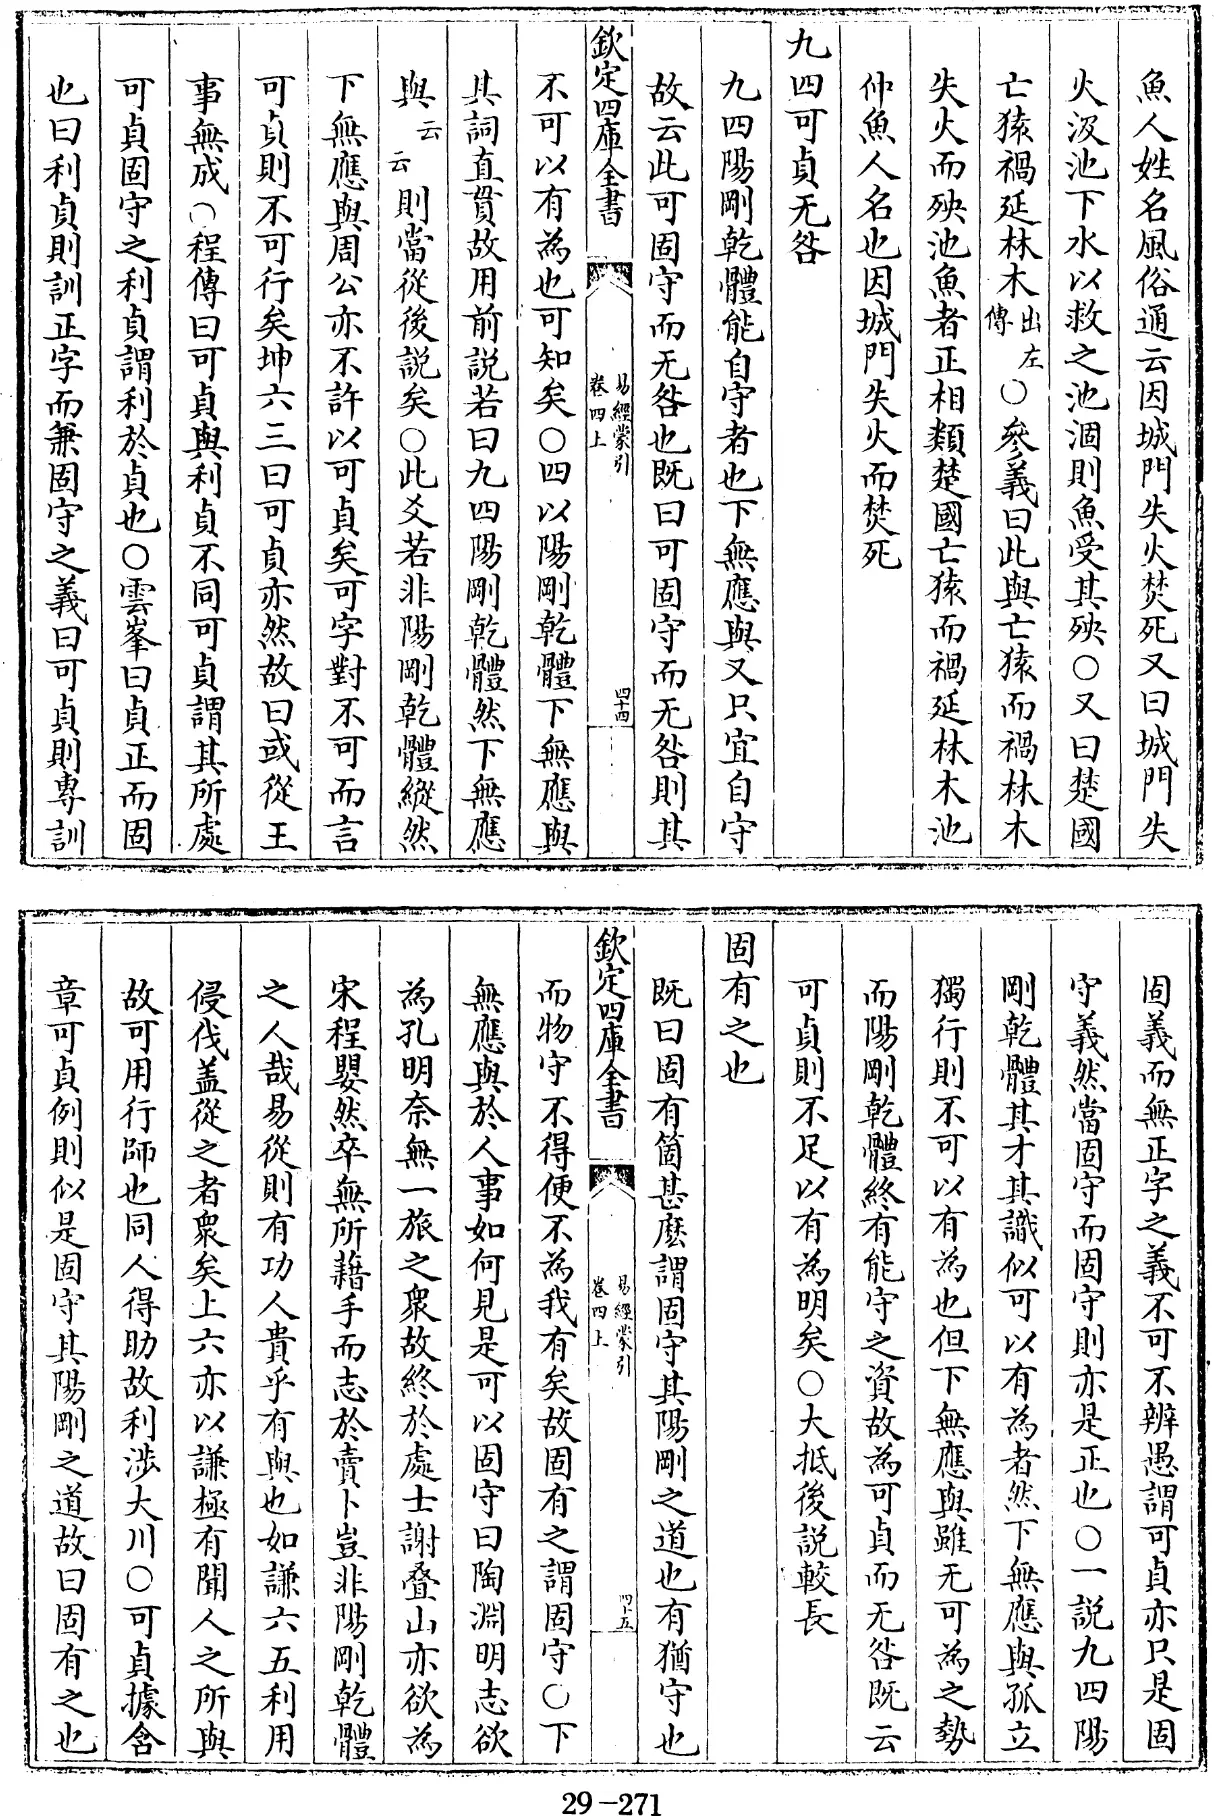 魚人姓名風俗通云因城門失火焚死又曰城門失
火汲池下水以救之池涸則魚受其殃○又曰楚國
亡猿禍延林木出左傳○參義曰此與亡猿而禍林木
失火而殃池魚者正相類楚國亡猿而禍延林木池
仲魚人名也因城門失火而焚死
九四可貞无咎
九四陽剛乾體能自守者也下無應與又只宜自守
故云此可固守而无咎也既曰可固守而无咎則其
欽定四庫全書
易經蒙引
卷四上
四十四
不可以有為也可知矣○四以陽剛乾體下無應與
其詞直貫故用前説若曰九四陽剛乾體然下無應
與云云則當從後説矣○此爻若非陽剛乾體縱然
下無應與周公亦不許以可貞矣可字對不可而言
可貞則不可行矣坤六三曰可貞亦然故曰或從王
事無成○程傳曰可貞與利貞不同可貞謂其所處
可貞固守之利貞謂利於貞也○雲峯曰貞正而固
也曰利貞則訓正字而兼固守之義曰可貞則專訓
固義而無正字之義不可不辨愚謂可貞亦只是固
守義然當固守而固守則亦是正也○一説九四陽
剛乾體其才其識似可以有為者然下無應與孤立
獨行則不可以有為也但下無應與雖无可為之勢
而陽剛乾體終有能守之資故為可貞而无咎既云
可貞則不足以有為明矣○大抵後説較長
固有之也
既曰固有箇甚麽謂固守其陽剛之道也有猶守也
欽定四庫全書
易經蒙引
卷四上
四十五
而物守不得便不為我有矣故固有之謂固守○下
無應與於人事如何見是可以固守曰陶淵明志欲
為孔明奈無一旅之衆故終於處士謝疊山亦欲為
宋程嬰然卒無所藉手而志於賣卜豈非陽剛乾體
之人哉易從則有功人貴乎有與也如謙六五利用
侵伐盖從之者衆矣上六亦以謙極有聞人之所與
故可用行師也同人得助故利涉大川○可貞據含
章可貞例則似是固守其陽剛之道故曰固有之也
29-271